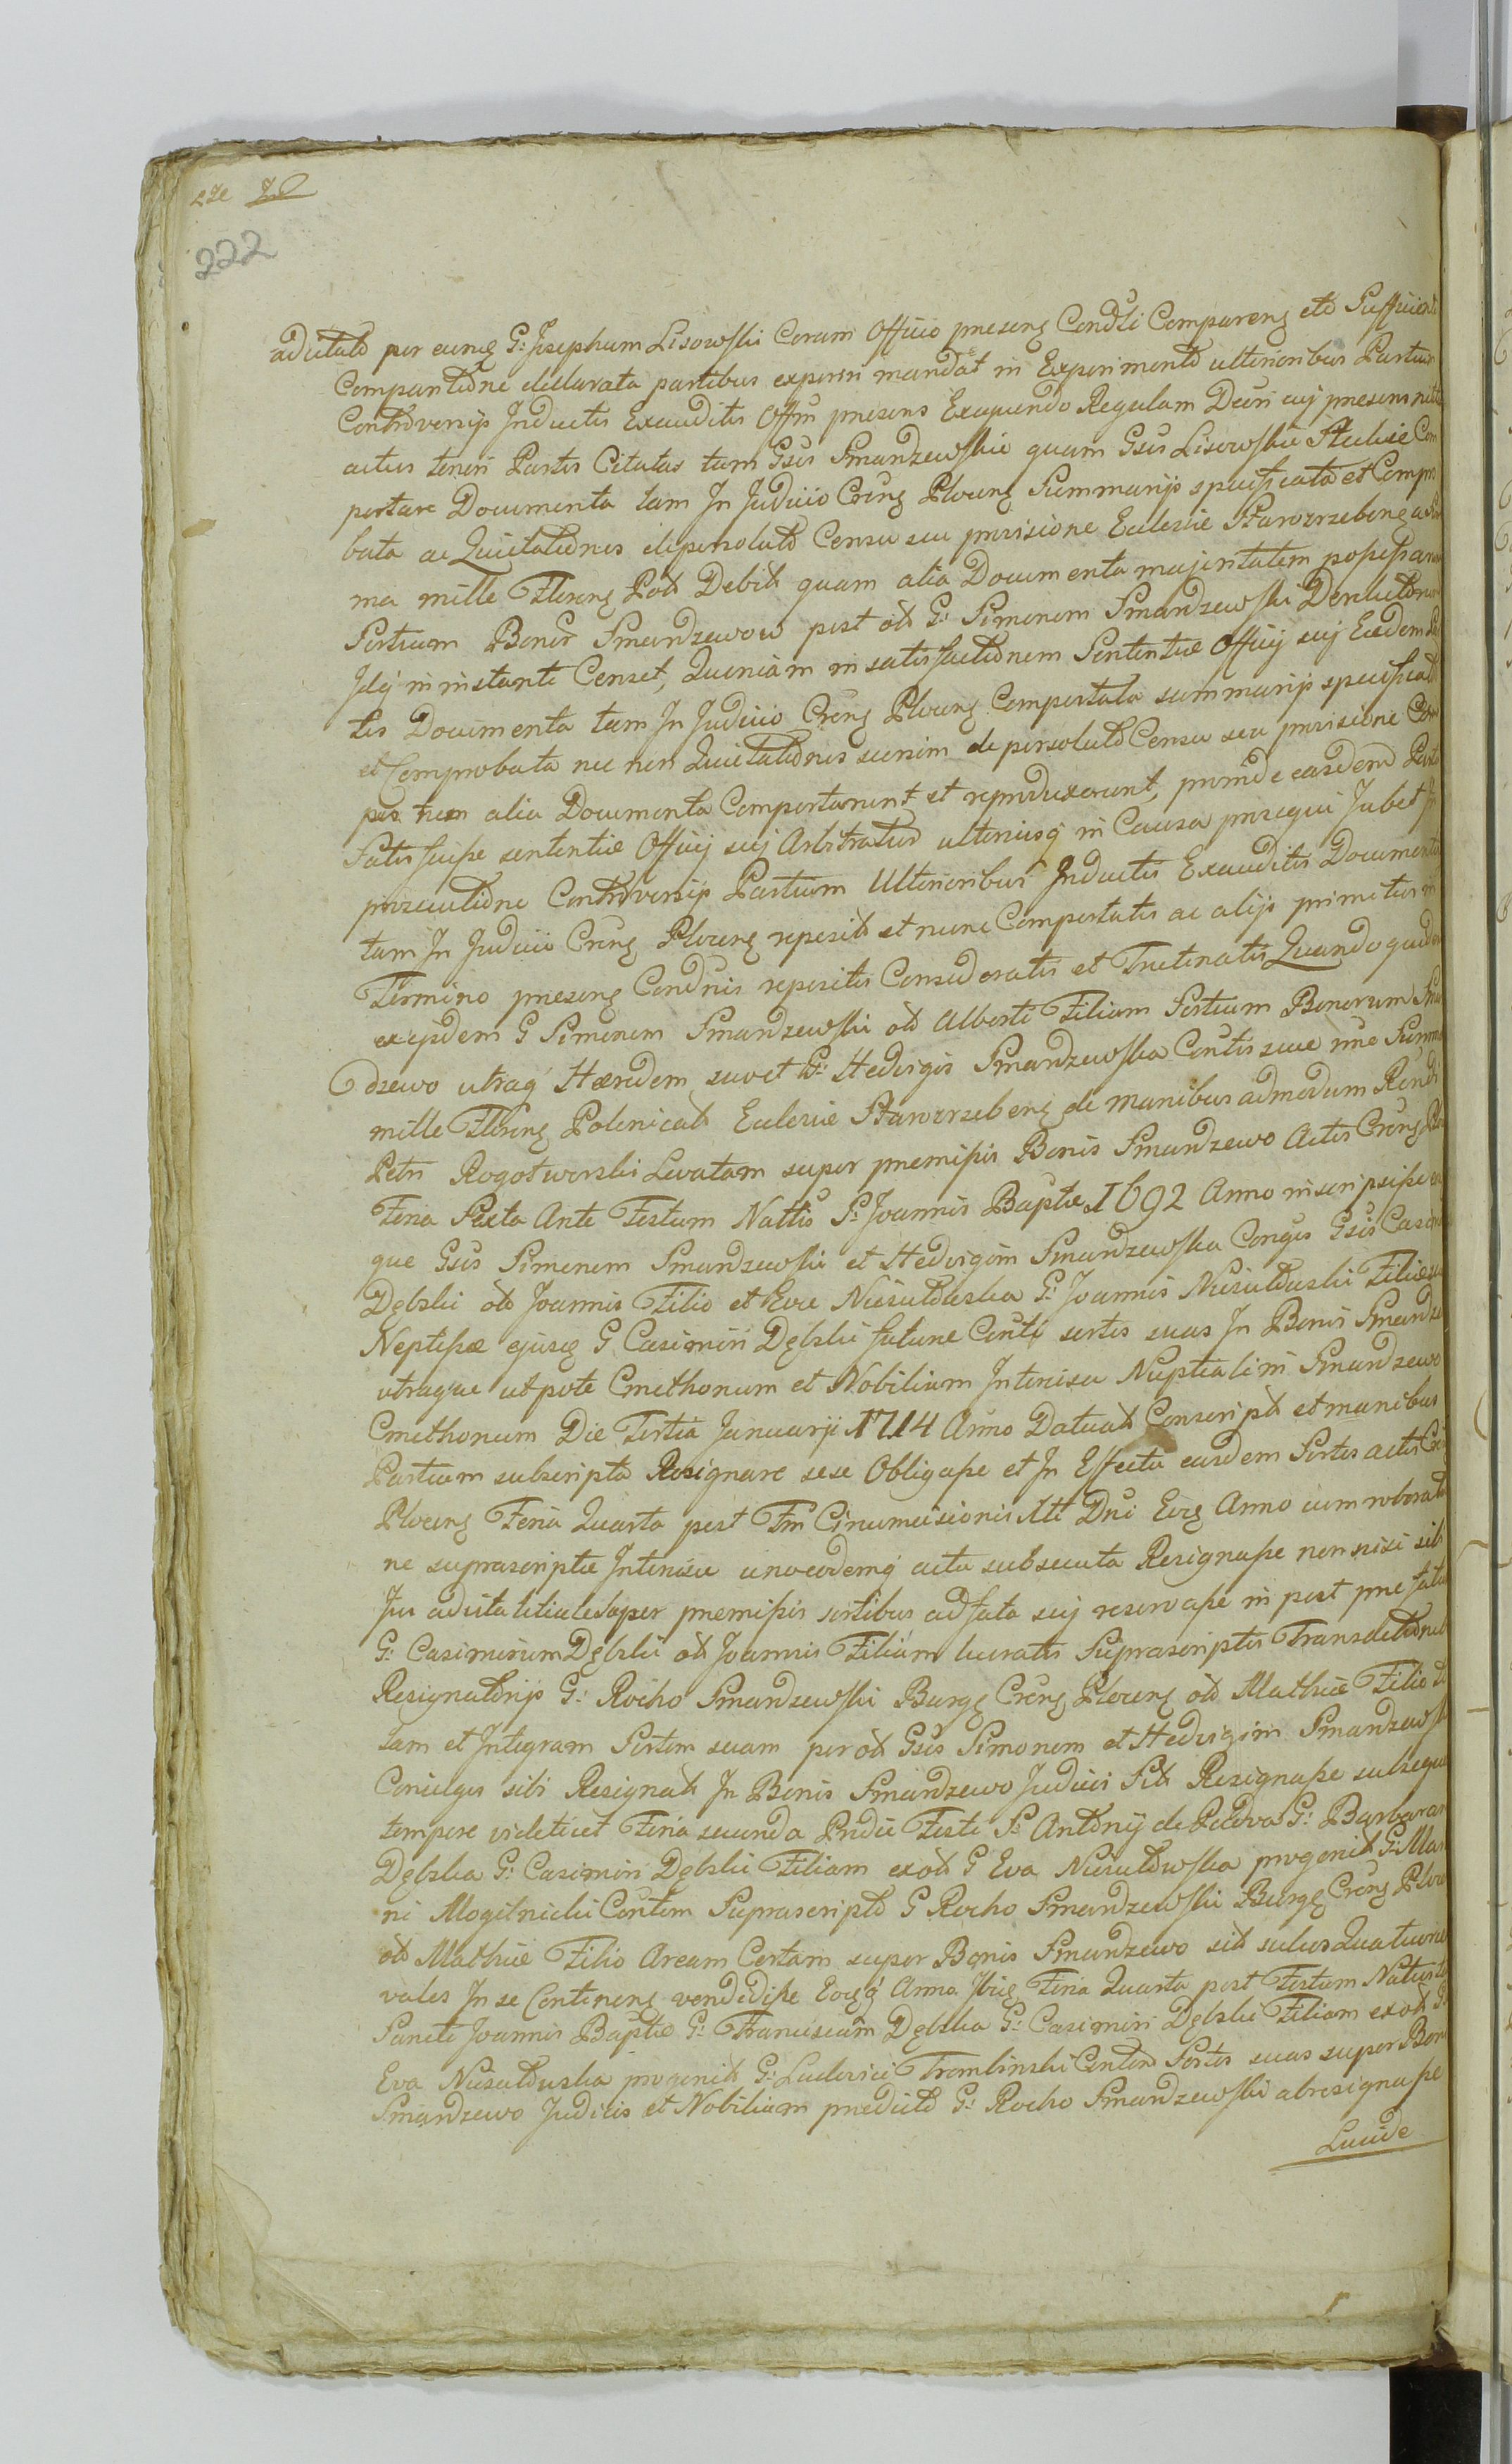 222
adcitato per eunq G: Josephum Lisowski Coram Officio presenq Condli Comparenq eto Sufficienti
Comparitione declarata partibus experiri mandat in Experimento ulterioribus Partium
Controversijs Inductis Exauditis Offm presens Exequendo Regulam Decri suj presens
actus teneri Partes Citatas tam Gsus Smardzewskie quam Gsus Lisowskie Com
portare Documenta tam In Judicio Crenq Plocenq Summarijs specificata et Compro
bata ac Quietationes de persoluto Censu seu provisione Ecclesiæ Starorzebenq a
ma mille Florenq Polt Debit quam alia Documenta majoritatem possessarum
Sortium Bonor Smardzewow post ot G: Simonem Smardzewski
Idq in instanti Censet, Quoniam in satisfactionem Sententiæ Officij suj Eædem Par
tes Documenta tam In Judicio Crenq Plocenq Comportata summarijs specificata
et Comprobata nec non Quietationes de persoluto Censu seu provisione
alia Documenta Comportarunt et reproduxerunt, proinde easdem Partes
Satisfecisse sententiæ Officij suj Arbitratur ulteriusq in Causa prosequi Jubet In
prosecutione Controversijs Partium Ulterioribus Inductis Exauditis Documentis
tam In Judicio Crenq Plocenq reposit et nunc Comportatis ac alijs primitus in
Termino presenq Condnis repositis Consideratis et Trutinatis Quandoquidem
exijsdem G Simonem Smardzewski ot Alberti Filium Sortium Bonorum Smar
dzewo utraq Hæredem suo et G: Hedvigis Smardzewska Contis suæ nne Summam
mille Florenq Polonicalt Ecclesiæ Starorzebenq de manibus admodum Rendi
Petri Rogotworski Levatam super premissis Bonis Smardzewo Actis Crenq Plo
Feria Sexta Ante Festum Nattis S: Joannis Baptæ 1692 Anno inscripsisse
que Gsus Simonem Smardzewski et Hedvigim Smardzewska Conges Gsis Casimiro
Dębski ot Joannis Filio et Evæ Niesułowska G: Joannis Niesułowski Filiæ
Neptisæ ejusq G Casimiri Dębski futuræ Conti sortes suas In Bonis Smardze
utraque utpote Cmethonum et Nobilium Intercisa Nuptiali in Smardzewo
Cmethonum Die Tertia Januarji 1714 Anno Datat Conscript et manibus
Partium subscripta Resignare sese Obligasse et In Effectu easdem Sortes actis Cr
Plocenq Feria Quarta post Fm Circumcisionis Xti Dni Eoq Anno cum roboratio
ne suprascriptæ Intercisæ uno eodemq actu subsecuta Resignasse non nisi sibi
Jus advitalitiale super premissis sortibus ad fata suj reservasse in post prefatum
G: Casimirum Dębski ot Joannis Filium lucratis Suprascriptis Transactionibus
Resignatorijs G: Rocho Smardzewski Burgq Crenq Plocenq ot Mathiæ Filio to
tam et Integram Sortem suam per ot Gsus Simonem et Hedvigim Smardzewski
Coniuges sibi Resignat In Bonis Smardzewo Judici Sit Resignasse subsequo
tempore videlicet Feria secunda Pridie Festi S: Antonij de Padva G: Barbaram
Dębska G: Casimiri Dębski Filiam ex ot G Eva Niesułowska progenit G: Mar
ni Mogilnicki Contem Suprascripto G Rocho Smardzewski Burgq Crenq Ploc
ot Mathiæ Filio Aream Certam super Bonis Smardzewo sit sulcos Quatuor
vales In se Continenq vendidisse Eoqq Anno Ibiq Feria Quarta post Festum Nattis
Sancti Joannis Baptæ G: Franciscam Dębska G: Casimiri Dębski Filiam ex ot G:
Eva Niesułowska progenit G: Ludovici Trembinski Contem Sortes suas super Bonis
Smardzewo Judicis et Nobilium predicto G: Rocho Smardzewski abresignasse
Lucide